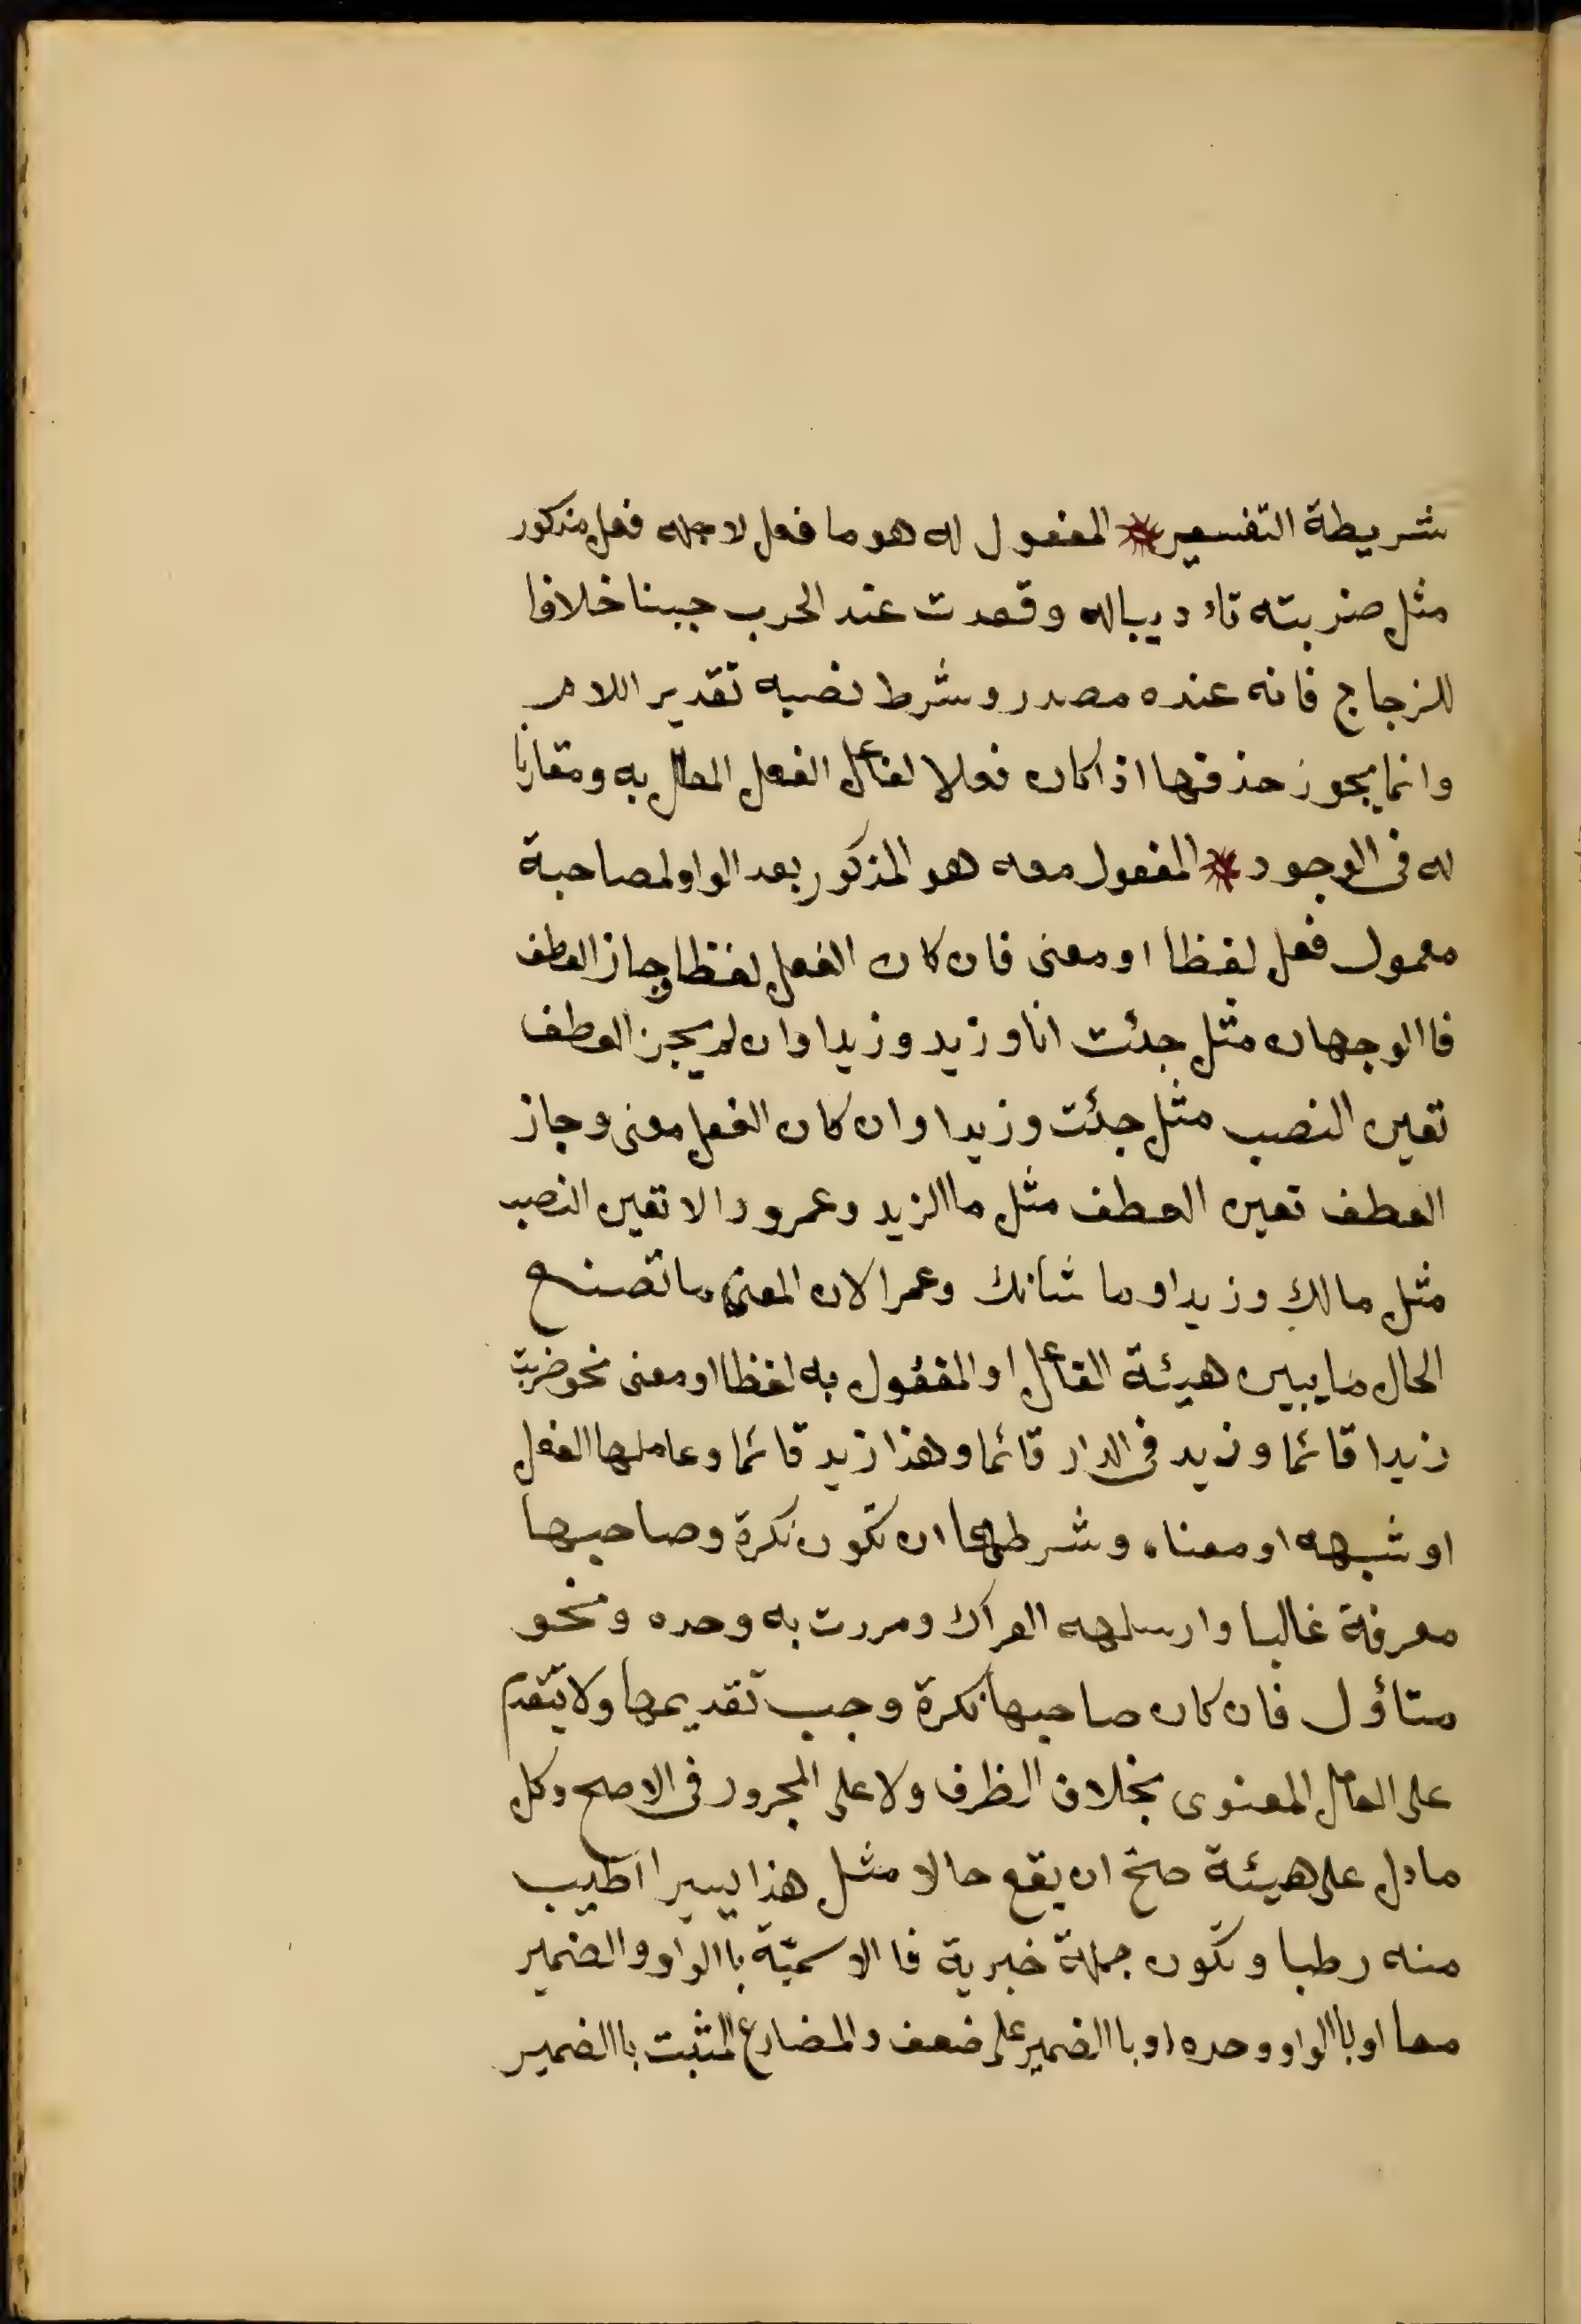 شريطة التفسير المفعول له هو ما فعل لاجله فعل مذكور
مثل ضربته تاديبا له وقعدت عند الحرب جبنا خلافا
للزجاج فانه عنده مصدر وشرط نصبه تقدير اللام
وانما يجوز حذفها اذا كان فعلا لفاعل الفعل المعلل به ومقارنا
له فى الوجود المفعول معه هو المذكور بعد الواو لمصاحبة
معمول فعل لفظا او معنى فان كان الفعل لفظا وجاز العطف
فاالوجهان مثل جئت انا وزيد وزيدا وان لم يجز العطف
تعين النصب مثل جئت وزيدا وان كان الفعل معنى وجاز
العطف تعين العطف مثل ماالزيد وعمرو والا تعين النصب
مثل مالك وزيدا وما شانك وعمرا لان المعنى ما تصنع
الحال ما يبين هيئة الفاعل او المفعول به لفظا او معنى نحو ضربت
زيدا قائما وزيد فى الدار قائما وهذا زيد قائما وعاملها الفعل
او شبهه او معناه وشرطها ان تكون نكرة وصاحبها
معرفة غالبا وارسلهه العراك ومررت به وحده ونحو
متاؤل فان كان صاحبها نكرة وجب تقديمها ولا يتقدم
على العامل المعنوى بخلاف الظرف ولا على المجرور فى الاصح وكل
ما دل على هيئة صح ان يقع حالا مثل هذا يسيرا اطيب
منه رطبا وتكون جملة خبرية فا الاسميّة باالواو والضمير
معا او باالواو وحده او باالضمير على ضعف والمضارع المثبت باالضمير